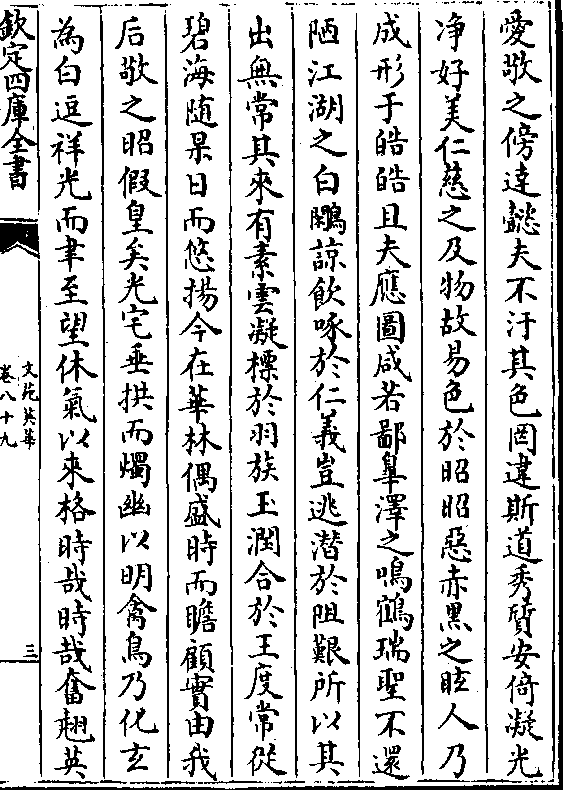 愛敬之傍達懿夫不汙其色罔違斯道秀質安倚凝光
净好美仁慈之及物故易色於昭昭惡赤黒之眩人乃
成形于皓皓且夫應圖咸若鄙臯澤之鳴鶴瑞聖不還
陋江湖之白鷴諒飲啄於仁義豈逃潜於阻艱所以其
出無常其來有素雲凝標於羽族玉潤合於王度常從
碧海随杲日而悠揚今在華林偶盛時而瞻顧實由我
后敬之昭假皇矣光宅垂拱而燭幽以明禽鳥乃化玄
為白逗祥光而聿至望休氣以來格時哉時哉奮翹英
欽定四庫全書
文苑英華
卷八十九
三